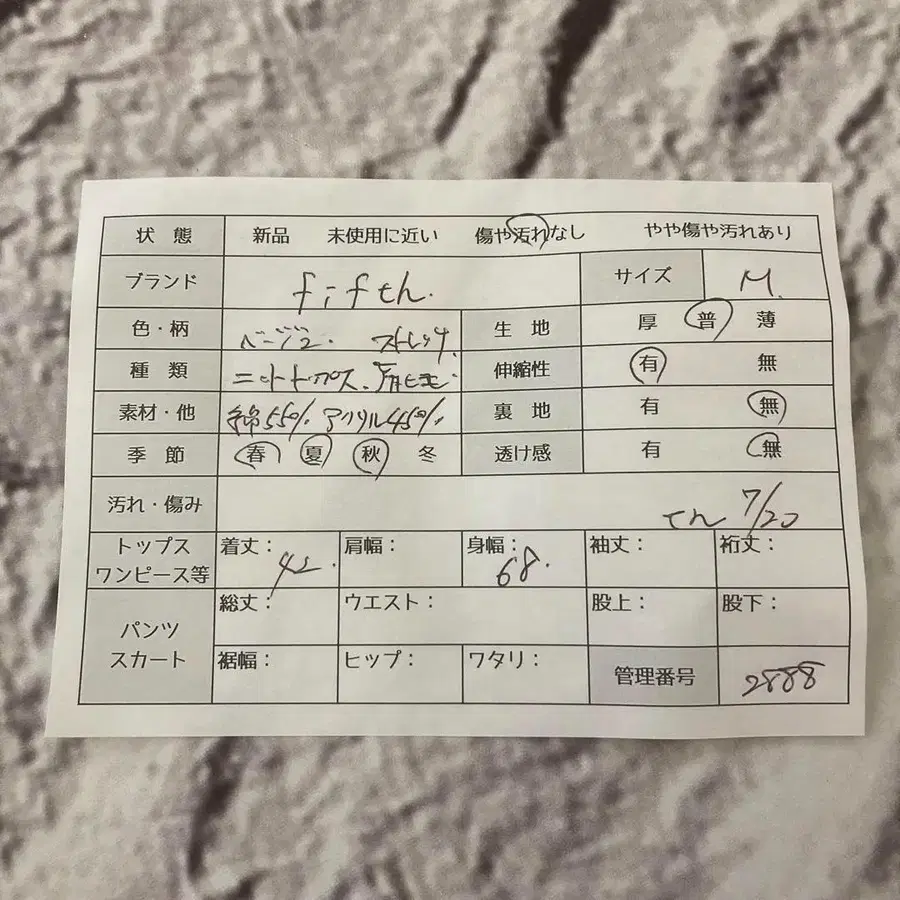 状態 新品 未使用に近い 傷や汚れなし やや傷や汚れあり
ブランド fifth. サイズ M.
色・柄 ベージュ. ストレッチ. 生地 厚 普 薄
種類 ニットトップス. 伸縮性 有 無
素材・他 綿55% アクリル45% 裏地 有 無
季節 春 夏 秋 冬 透け感 有 無
汚れ・傷み 7/20
トップス ワンピース等 着丈: 42. 肩幅: 身幅: 68. 袖丈: 裄丈:
パンツ スカート 総丈: ウエスト: 股上: 股下:
裾幅: ヒップ: ワタリ: 管理番号 2888